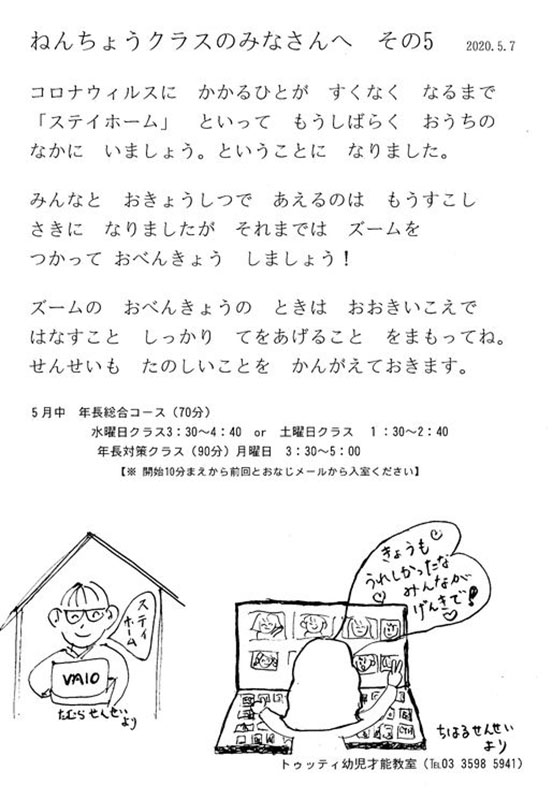 ねんちょうクラスのみなさんへ　その5　2020.5.7
コロナウィルスに　かかるひとが　すくなく　なるまで
「ステイホーム」　といって　もうしばらく　おうちの
なかに　いましょう。ということに　なりました。
みんなと　おきょうしつで　あえるのは　もうすこし
さきに　なりましたが　それまでは　ズームを
つかって おべんきょう　しましょう！
ズームの　おべんきょうの　ときは　おおきいこえで
はなすこと　しっかり　てをあげること　をまもってね。
せんせいも　たのしいことを　かんがえておきます。
５月中　年長総合コース（70分）
水曜日クラス3：30～4：40　or　土曜日クラス　１：30～2：40
年長対策クラス（90分）月曜日　3：30～5：00
【※ 開始10分まえから前回とおなじメールから入室ください】
ステイ
ホーム
VAIO
たむらせんせい
より
きょうも
うれしかったな
みんなが
げんきで！
ちはるせんせい
より
トゥッティ幼児才能教室（℡03 3598 5941）